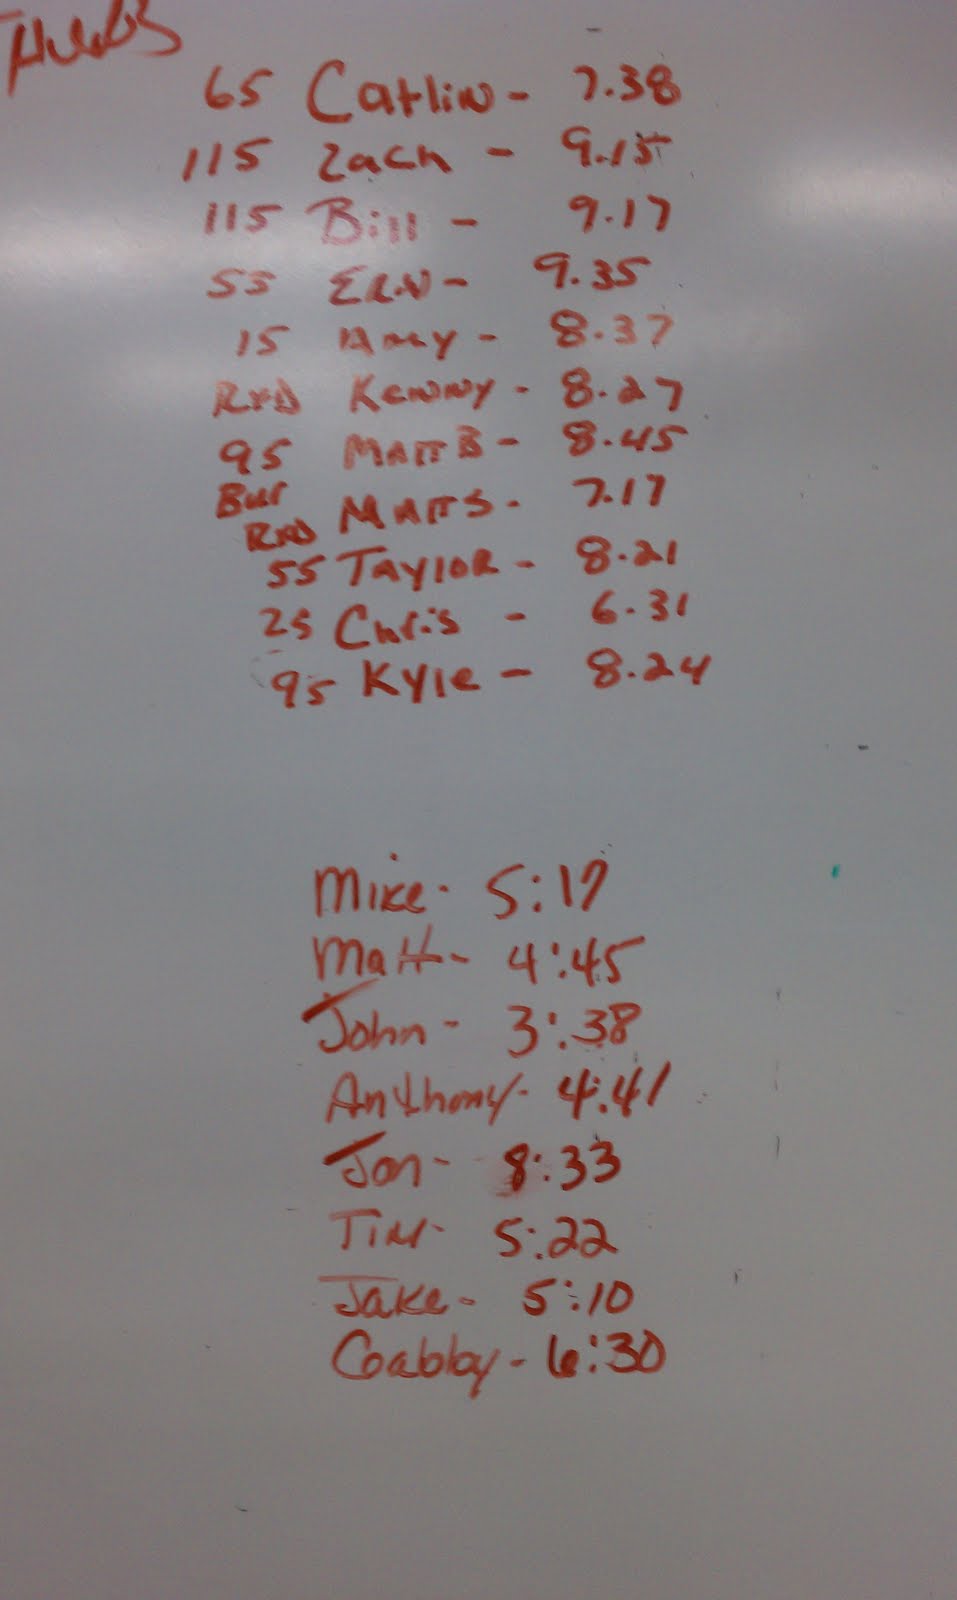 65 Catlin - 7.38
115 Zach - 9.15
115 Bill - 9.17
55 Erin - 9.35
15 Amy - 8.37
RXD Kenny - 8.27
95 Matt B - 8.45
Bur RXD Matt S. 7.17
55 Taylor - 8.21
25 Chris - 6.31
95 Kyle - 8.24
Mike - 5:17
Matt - 4:45
John - 3:38
Anthony - 4:41
Jon - 8:33
Tim - 5:22
Jake - 5:10
Gabby - 6:30